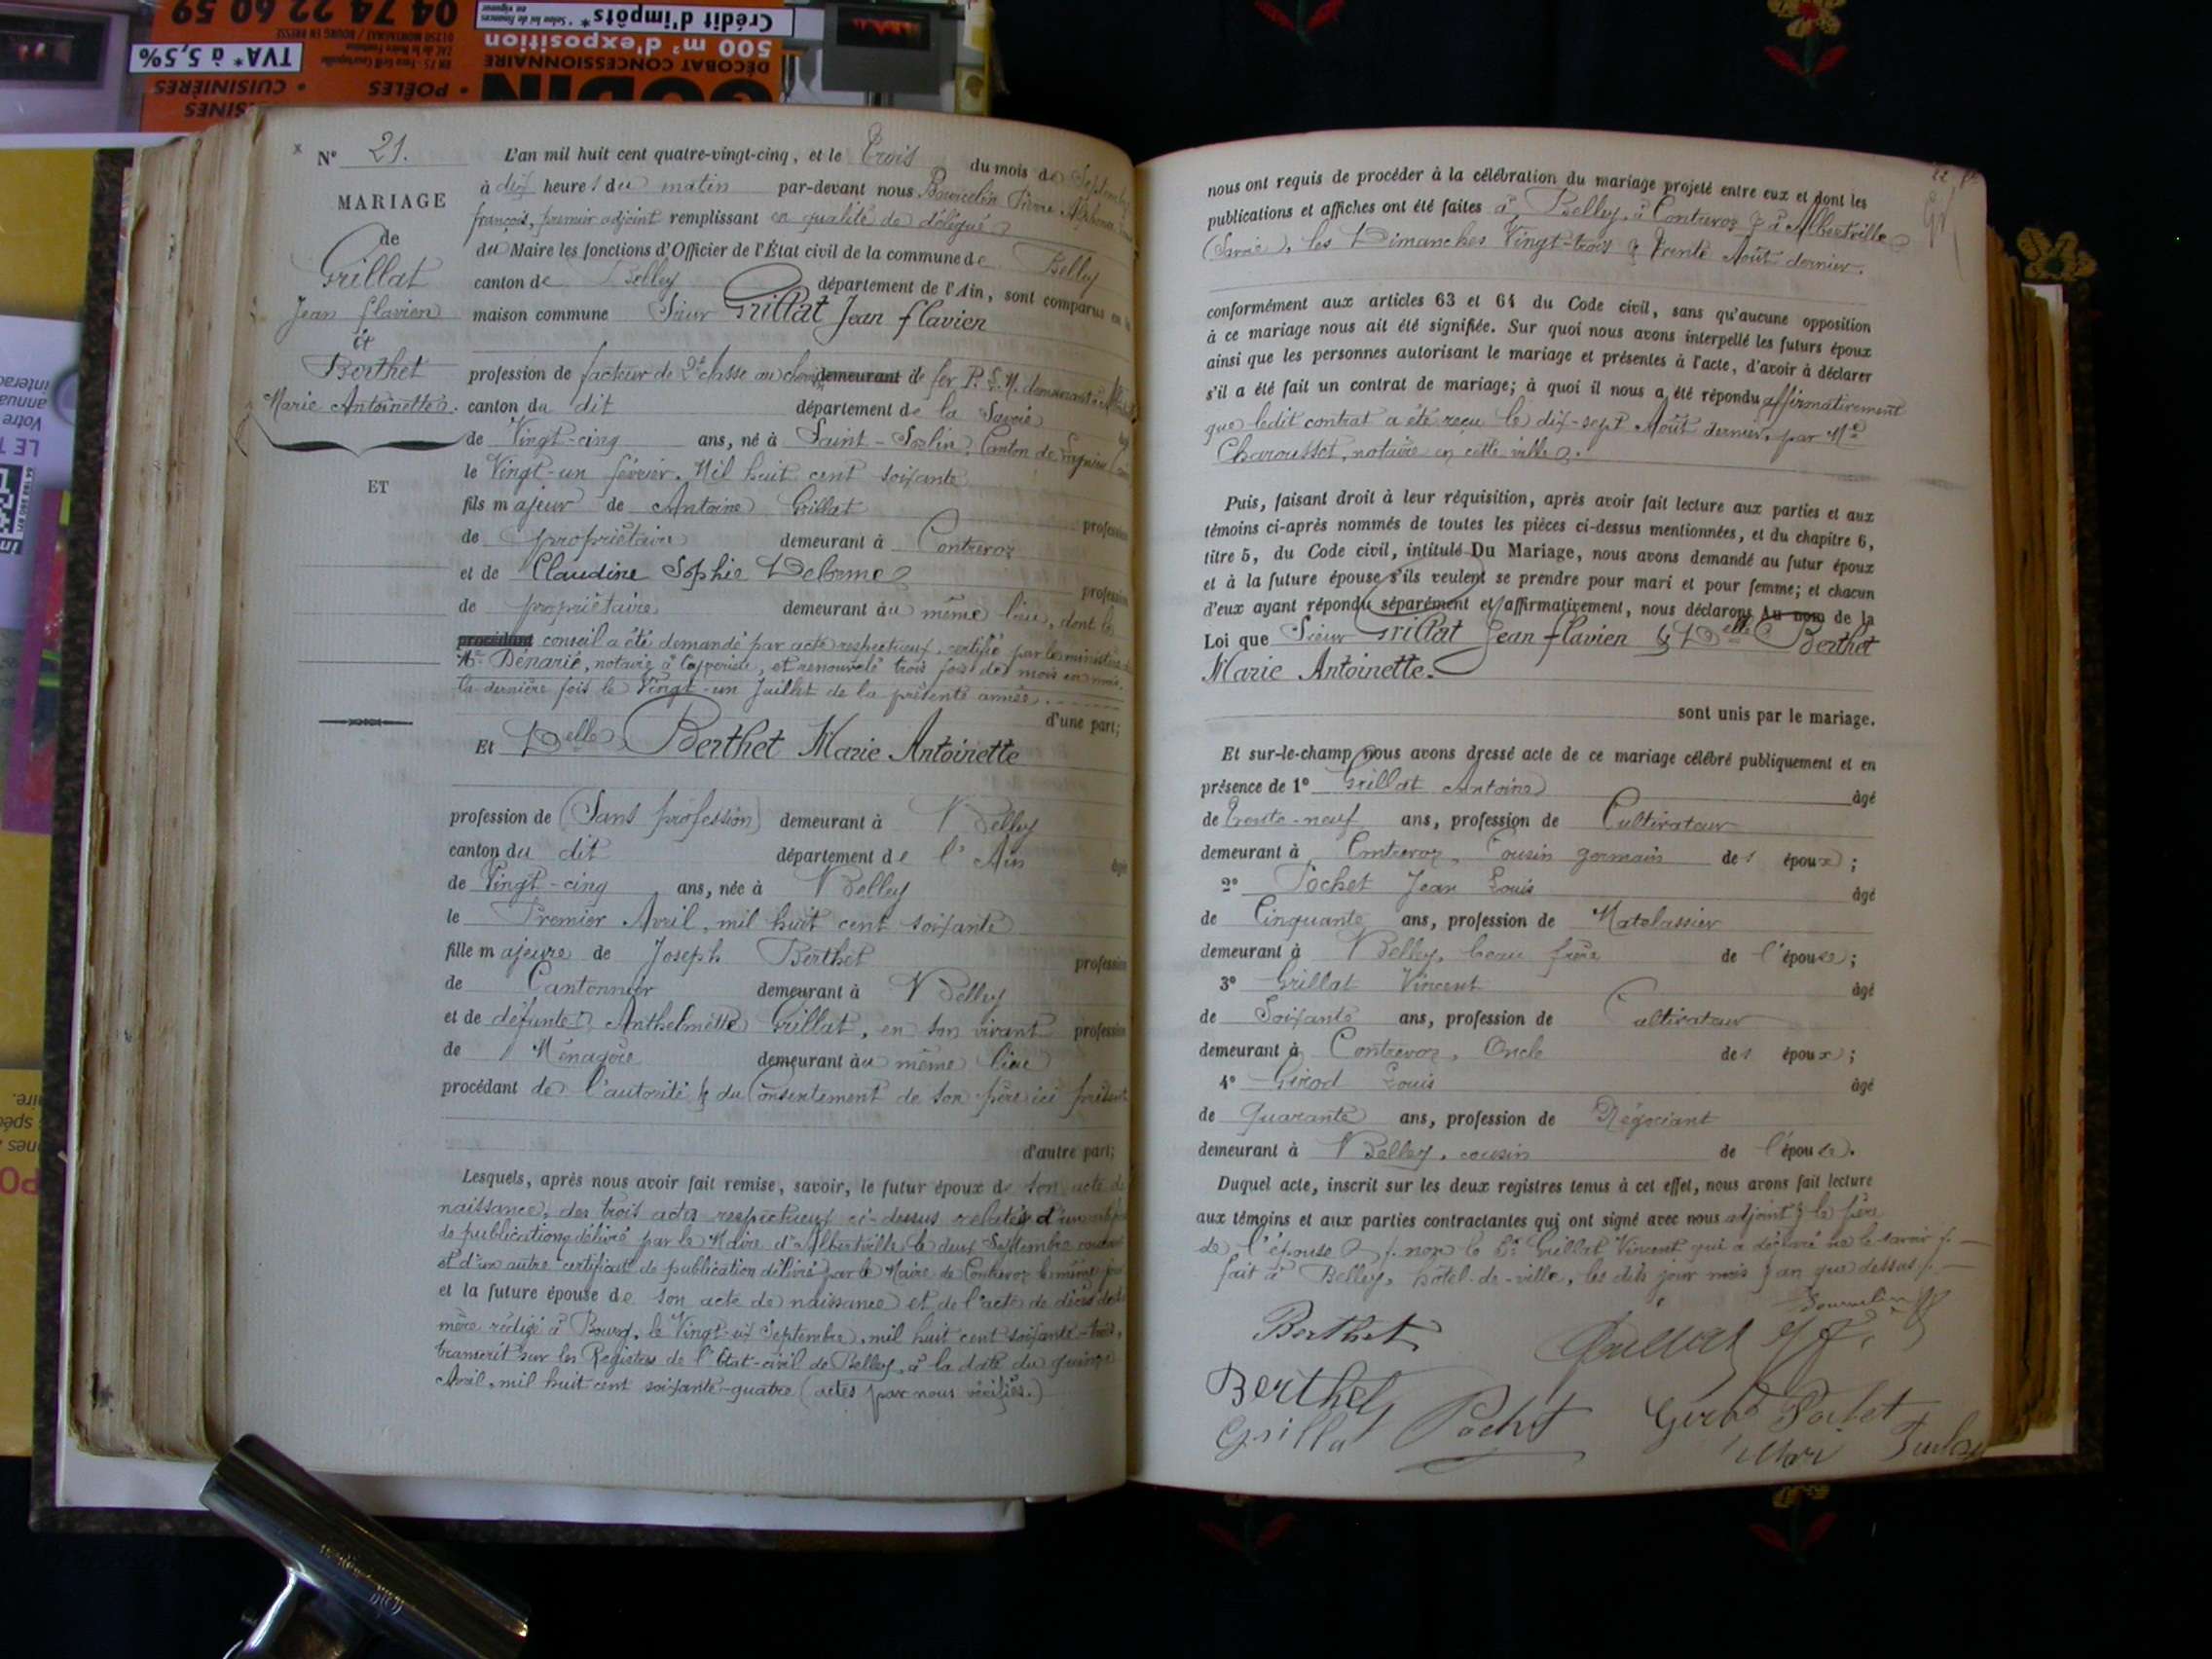 Crédit d'impôts*
04 74 22 60 59
500 m² d'exposition
DÉCOBAT CONCESSIONNAIRE
TVA* à 5,5%
• POÊLES
• CUISINIÈRES
N° 21.
MARIAGE
de
Grillat
Jean flavien
et
Berthet
Marie Antoinette.
ET
L'an mil huit cent quatre-vingt-cinq, et le Trois du mois de Septembre
à dix heures du matin par-devant nous Pierre Alphonse
françois, premier adjoint remplissant en qualité de délégué
du Maire les fonctions d'Officier de l'État civil de la commune de Belley
canton de Belley département de l'Ain, sont comparus en la
maison commune Sieur Grillat Jean flavien
profession de facteur de 2e classe au chemin demeurant de fer P. L. M. demeurant à
canton du dit département de la Savoie
de Vingt-cinq ans, né à Saint-Sorlin, Canton de
le Vingt-un février, Mil huit cent soixante
fils majeur de Antoine Grillat profession
de propriétaire demeurant à Contrevoz
et de Claudine Sophie Delorme profession
de propriétaire demeurant au même lieu, dont le
procédant conseil a été demandé par acte respectueux, certifié par le ministère de
Me Dénarié, notaire à, et renouvelé trois fois de mois en mois,
la dernière fois le Vingt-un Juillet de la présente année.
d'une part;
Et Delle Berthet Marie Antoinette
profession de (Sans profession) demeurant à Belley
canton du dit département de l'Ain âgée
de Vingt-cinq ans, née à Belley
le Premier Avril, mil huit cent soixante
fille majeure de Joseph Berthet profession
de Cantonnier demeurant à Belley
et de défunte Anthelmette Grillat, en son vivant profession
de Ménagère demeurant au même lieu
procédant de l'autorité & du Consentement de son père ici présent
d'autre part;
Lesquels, après nous avoir fait remise, savoir, le futur époux de son acte de
naissance, des trois actes respectueux ci-dessus relatés d'un certificat
de publications délivré par le Maire d'Albertville le deux Septembre courant
et d'un autre certificat de publication délivré par le Maire de Contrevoz le même jour
et la future épouse de son acte de naissance et de l'acte de décès de sa
mère rédigé à Bourg, le Vingt-six Septembre, mil huit cent soixante-trois,
transcrit sur les Registres de l'État-civil de Belley, à la date du quinze
Avril, mil huit cent soixante-quatre (actes par nous vérifiés.)
nous ont requis de procéder à la célébration du mariage projeté entre eux et dont les
publications et affiches ont été faites à Belley, à Contrevoz & à Albertville
(Savoie), les Dimanches Vingt-trois & Trente Août dernier.
conformément aux articles 63 et 64 du Code civil, sans qu'aucune opposition
à ce mariage nous ait été signifiée. Sur quoi nous avons interpellé les futurs époux
ainsi que les personnes autorisant le mariage et présentes à l'acte, d'avoir à déclarer
s'il a été fait un contrat de mariage; à quoi il nous a été répondu affirmativement
que ledit contrat a été reçu le dix-sept Août dernier, par Me
Charousset, notaire en cette ville.
Puis, faisant droit à leur réquisition, après avoir fait lecture aux parties et aux
témoins ci-après nommés de toutes les pièces ci-dessus mentionnées, et du chapitre 6,
titre 5, du Code civil, intitulé Du Mariage, nous avons demandé au futur époux
et à la future épouse s'ils veulent se prendre pour mari et pour femme; et chacun
d'eux ayant répondu séparément et affirmativement, nous déclarons Au nom de la
Loi que Sieur Grillat Jean flavien & Delle Berthet
Marie Antoinette.
sont unis par le mariage.
Et sur-le-champ nous avons dressé acte de ce mariage célébré publiquement et en
présence de 1° Grillat Antoine âgé
de Trente-neuf ans, profession de Cultivateur
demeurant à Contrevoz, Cousin germain de l'époux;
2° Pochet Jean Louis âgé
de Cinquante ans, profession de Matelassier
demeurant à Belley, beau frère de l'épouse;
3° Grillat Vincent âgé
de Soixante ans, profession de Cultivateur
demeurant à Contrevoz, Oncle de l'époux;
4° Girod Louis âgé
de quarante ans, profession de Négociant
demeurant à Belley, cousin de l'épouse.
Duquel acte, inscrit sur les deux registres tenus à cet effet, nous avons fait lecture
aux témoins et aux parties contractantes qui ont signé avec nous adjoint & le père
de l'épouse & non le Sr Grillat Vincent qui a déclaré ne le savoir
fait à Belley, hôtel-de-ville, les dits jour mois & an que dessus
Berthet
Berthet
Grillat
Pochet
Girod Pochet